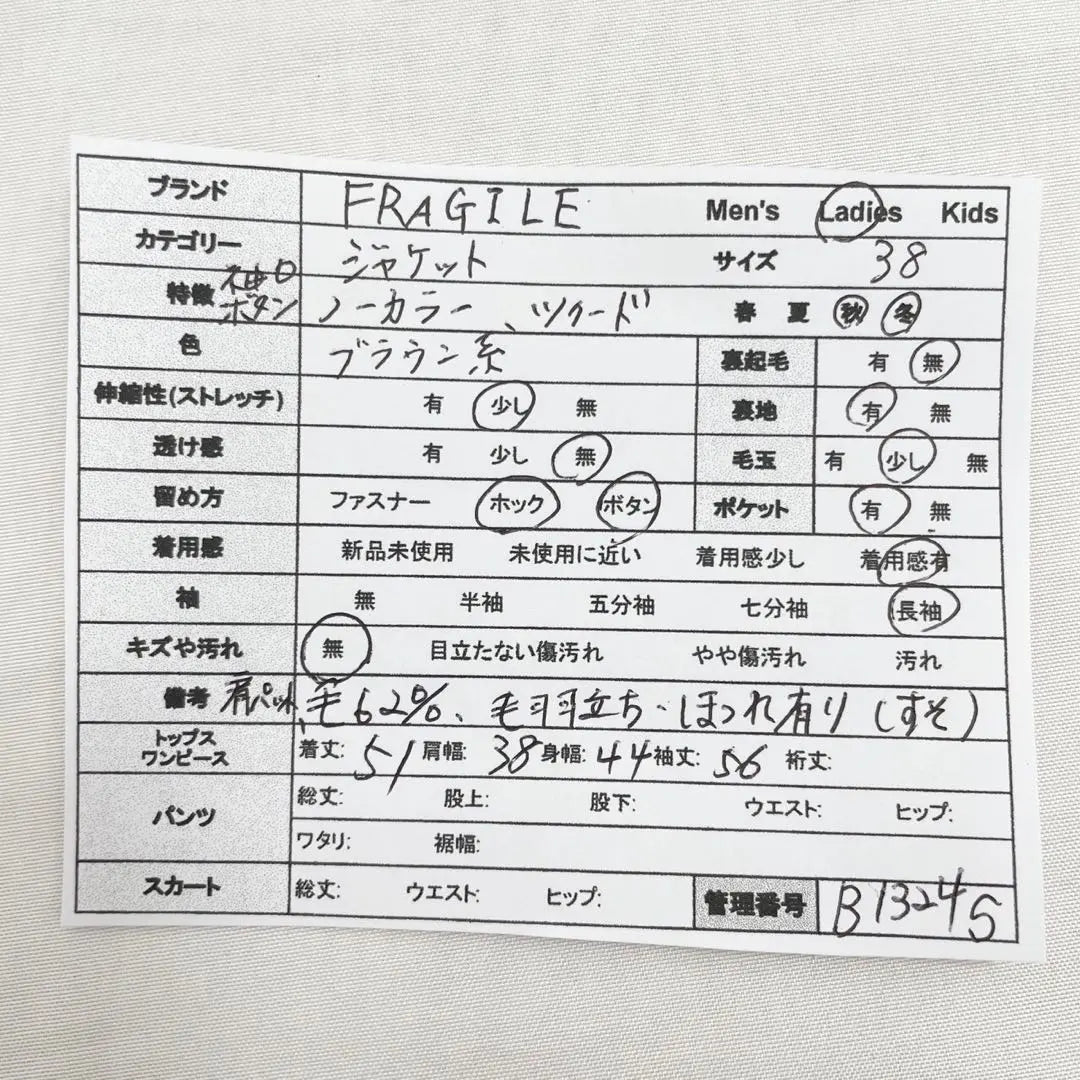 ブランド FRAGILE Men's Ladies Kids
カテゴリー ジャケット サイズ 38
特徴 袖口ボタン ノーカラー、ツイード 春 夏 秋 冬
色 ブラウン系 裏起毛 有 無
伸縮性(ストレッチ) 有 少し 無 裏地 有 無
透け感 有 少し 無 毛玉 有 少し 無
留め方 ファスナー ホック ボタン ポケット 有 無
着用感 新品未使用 未使用に近い 着用感少し 着用感有
袖 無 半袖 五分袖 七分袖 長袖
キズや汚れ 無 目立たない傷汚れ やや傷汚れ 汚れ
備考 肩パット、毛62%、毛羽立ち・ほつれ有り(すそ)
トップス ワンピース 着丈: 51 肩幅: 38 身幅: 44 袖丈: 56 裄丈:
パンツ 総丈: 股上: 股下: ウエスト: ヒップ:
ワタリ: 裾幅:
スカート 総丈: ウエスト: ヒップ: 管理番号 B1324S